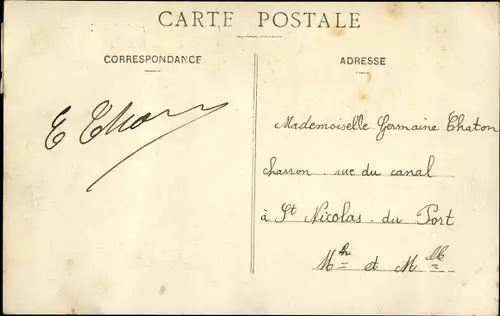 CARTE POSTALE
CORRESPONDANCE
ADRESSE
Mademoiselle Germaine Thaton
charron. rue du canal
à St Nicolas. du Port
Mthe et M Mlle